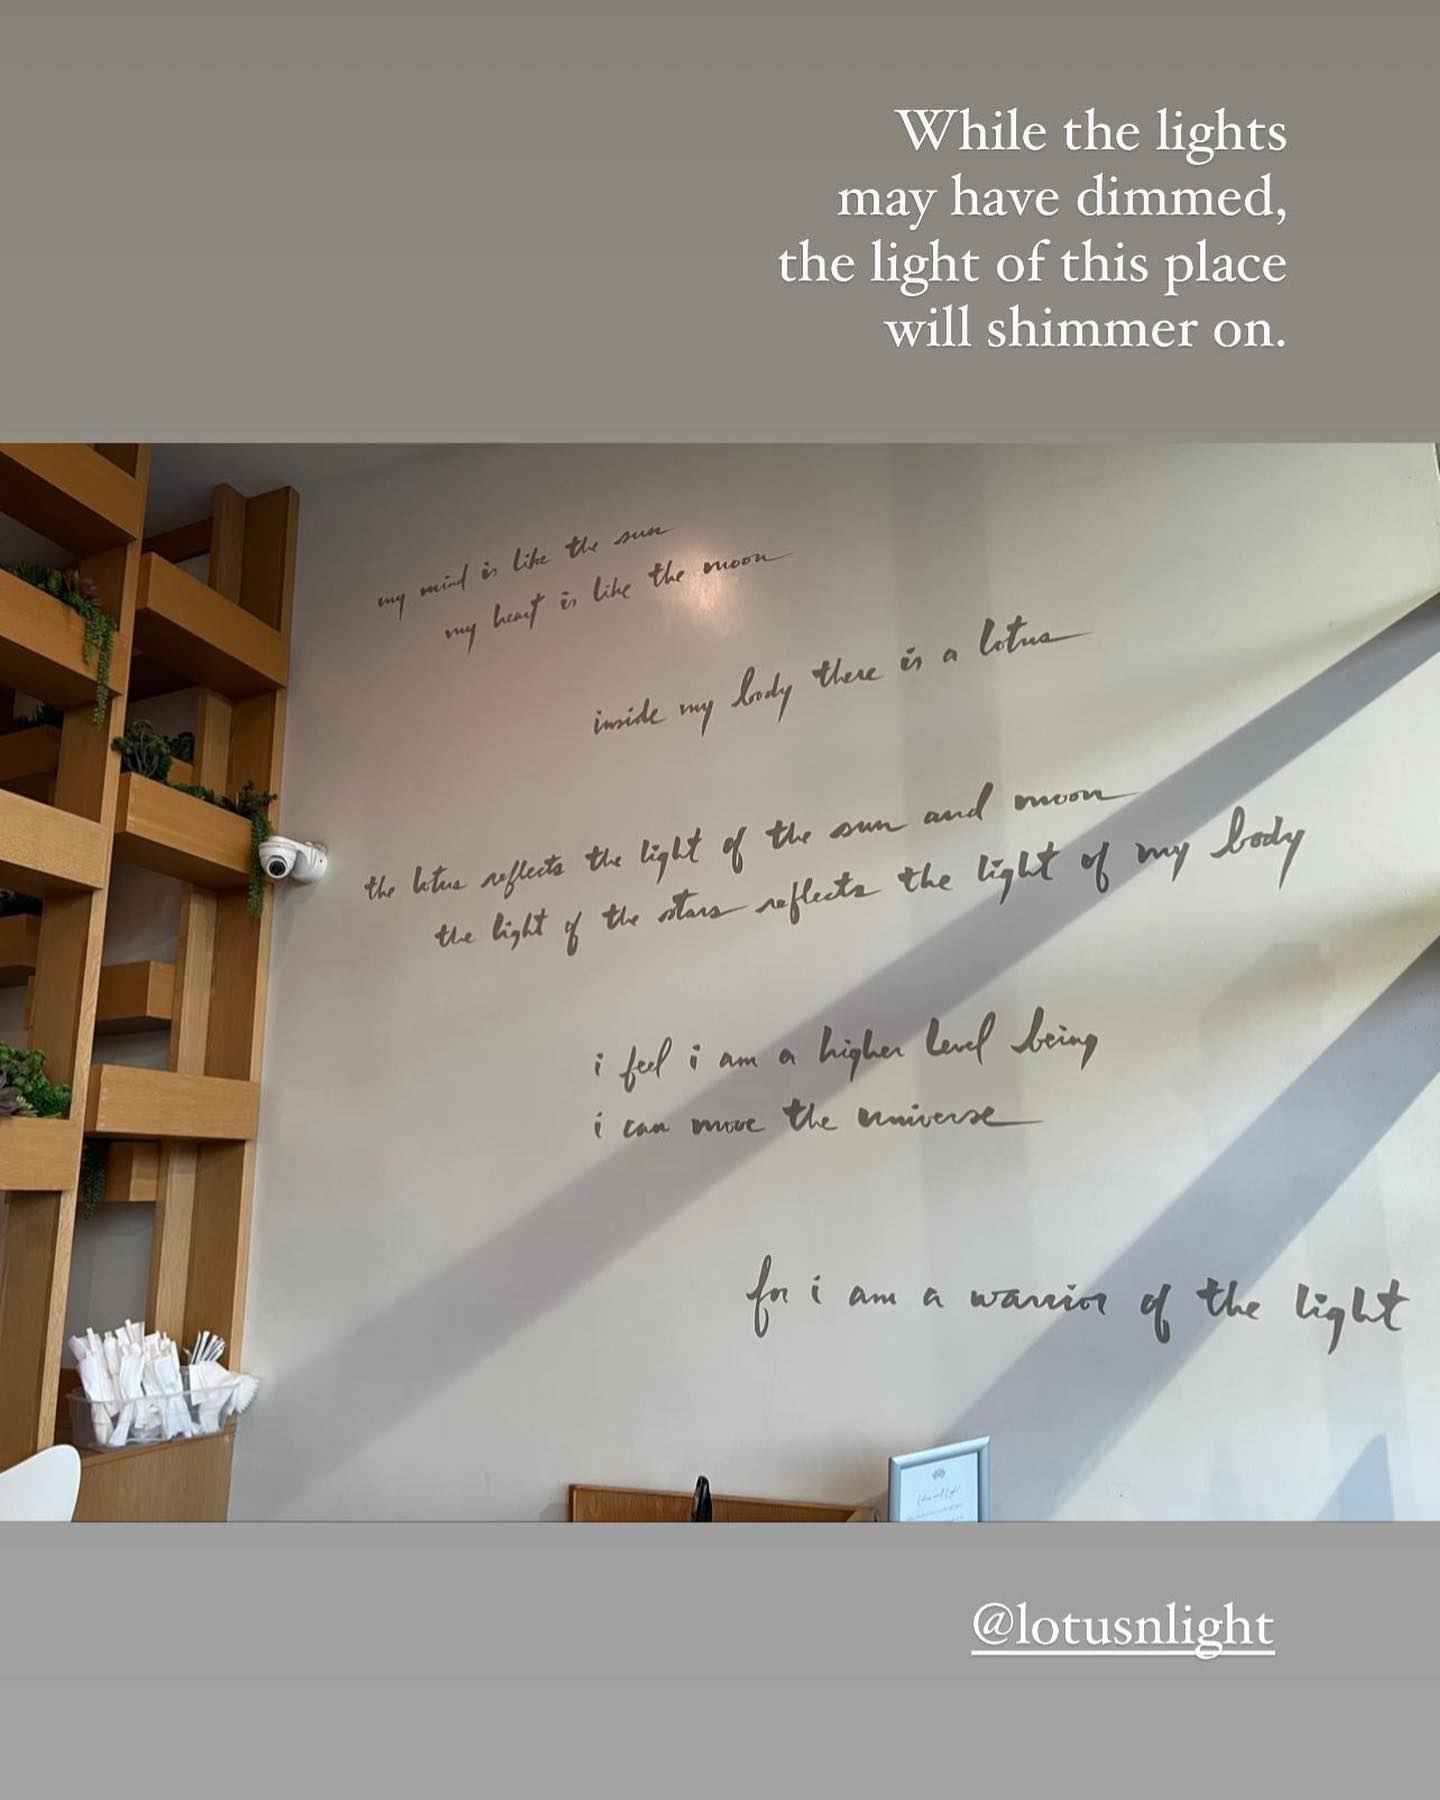 While the lights
may have dimmed,
the light of this place
will shimmer on.
my mind is like the sun
my heart is like the moon
inside my body there is a lotus
the lotus reflects the light of the sun and moon
the light of the stars reflects the light of my body
i feel i am a higher level being
i can move the universe
for i am a warrior of the light
Lotus and Light
@lotusnlight